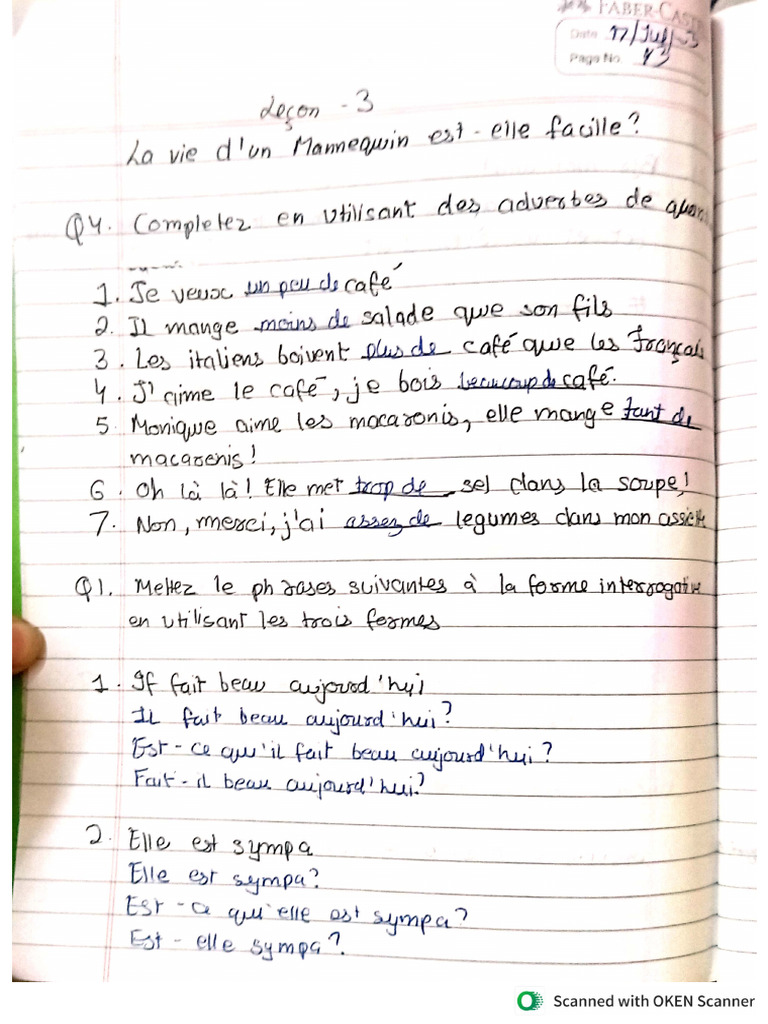 FABER-CAST
Date 17/Jul/23
Page No 43
Leçon - 3
La vie d'un Mannequin est - elle facille?
Q4. Completez en utilisant des adverbes de quan
1. Je veux un peu de café
2. Il mange moins de salade que son fils
3. Les italiens boivent plus de café que les français
4. J'aime le café, je bois beaucoup de café.
5. Monique aime les macaronis, elle mange tant de
macarenis!
6. Oh là là! Elle met trop de sel dans la soupe!
7. Non, merci, j'ai assez de legumes dans mon assiette
Q1. Mettez le phrases suivantes à la forme interrogative
en utilisant les trois formes
1. Il fait beau aujourd'hui
Il fait beau aujourd'hui?
Est - ce qu'il fait beau aujourd'hui?
Fait - il beau aujourd'hui?
2. Elle est sympa
Elle est sympa?
Est - ce qu'elle est sympa?
Est - elle sympa?
Scanned with OKEN Scanner